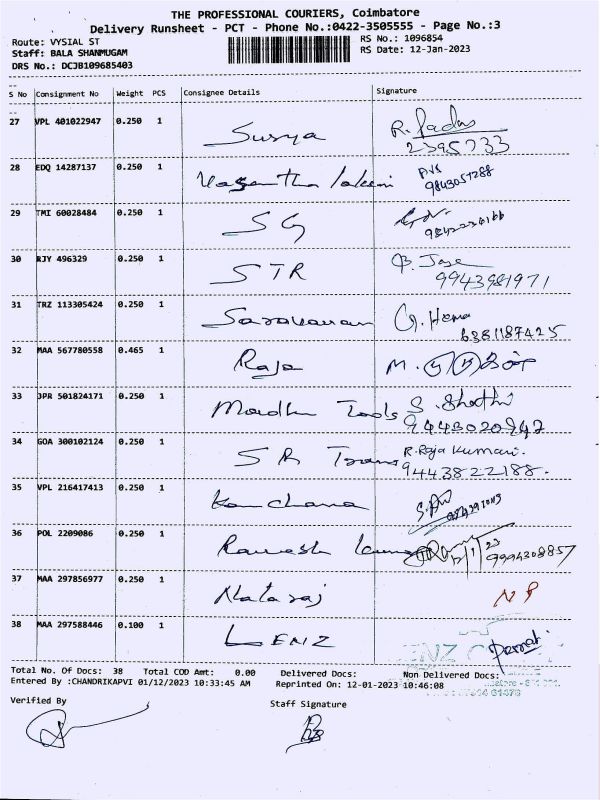 THE PROFESSIONAL COURIERS, Coimbatore
Delivery Runsheet - PCT - Phone No.:0422-3505555 - Page No.:3
Route: VYSIAL ST
RS No.: 1096854
Staff: BALA SHANMUGAM
RS Date: 12-Jan-2023
DRS No.: DCJB109685403
S No Consignment No Weight PCS Consignee Details Signature
27 VPL 401022947 0.250 1 Surya
28 EDQ 14287137 0.250 1
29 TMI 60028484 0.250 1 SG
30 RJY 496329 0.250 1 STR B. Jose
9943981971
31 TRZ 113305424 0.250 1 Saravanan G. Hema
6381187425
32 MAA 567780558 0.465 1 Raja M.
33 JPR 501824171 0.250 1 Madhu Tools S. Shathi
9443020942
34 GOA 300102124 0.250 1 SR Trans R. Raja Kumari.
9443822188.
35 VPL 216417413 0.250 1 Kanchana
36 POL 2209086 0.250 1 Ramesh
12/1/23
9994308857
37 MAA 297856977 0.250 1 Nataraj NP
38 MAA 297588446 0.100 1 LENZ
Total No. Of Docs: 38 Total COD Amt: 0.00 Delivered Docs: Non Delivered Docs:
Entered By :CHANDRIKAPVI 01/12/2023 10:33:45 AM Reprinted On: 12-01-2023 10:46:08
Verified By
Staff Signature